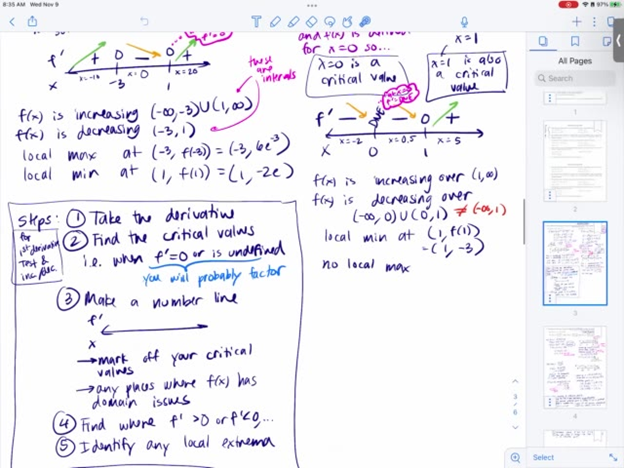 8:35 AM Wed Nov 9
97%
f' + 0 — 0 +
x=-10 x=0 x=20
X -3 1
these are intervals
f(x) is increasing (-∞,-3)∪(1,∞)
f(x) is decreasing (-3,1)
local max at (-3, f(-3)) = (-3, 6e⁻³)
local min at (1, f(1)) = (1, -2e)
for x=0 so...
x=0 is a critical value
x=1
x=1 is also a critical value
f' — DNE — 0 +
x=-2 x=0.5 x=5
X 0 1
f(x) is increasing over (1,∞)
f(x) is decreasing over
(-∞, 0)∪(0,1) ≠ (-∞,1)
local min at (1, f(1))
= (1, -3)
no local max
Steps: ① Take the derivative
for 1st derivative Test & inc/dec
② Find the critical values
i.e. when f'=0 or is undefined
you will probably factor
③ Make a number line
f'
x
→ mark off your critical
values
→ any places where f(x) has
domain issues
④ Find where f' >0 or f'<0,...
⑤ Identify any local extrema
All Pages
Search
1
2
3
4
3
/
6
Select